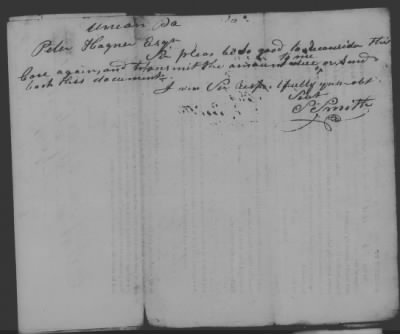 Peter Hagner Esqr
Sir pleas be so good to reconsider this
Case again, and transmit the amount due to me or send
back this document
I am Sir respectfully your obt
Sert
S Smith